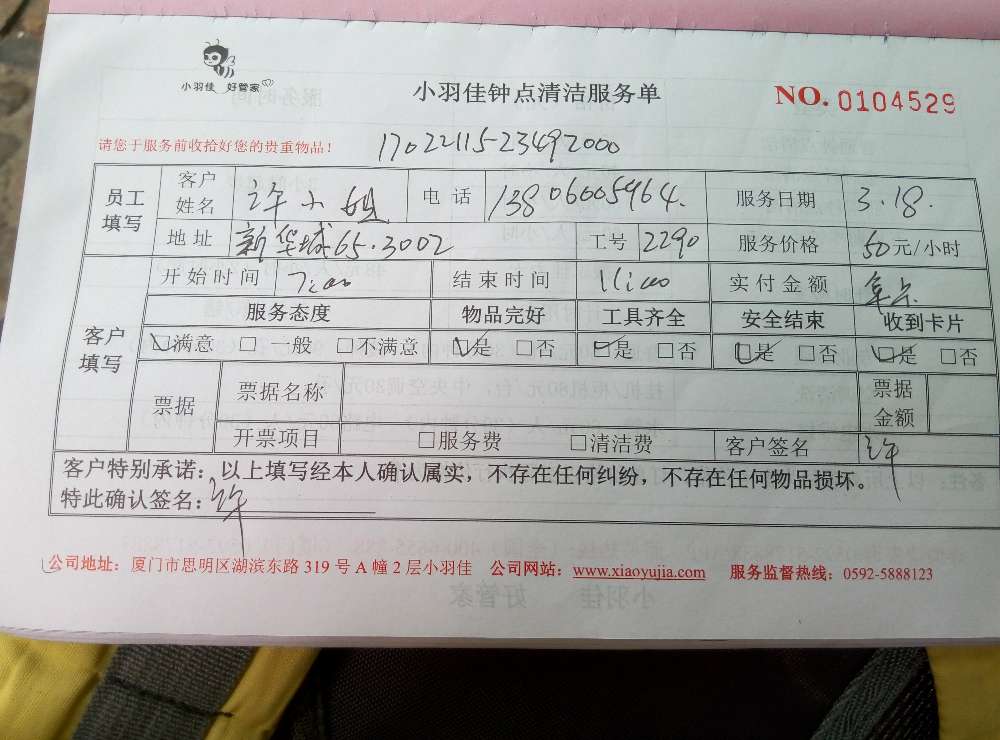 小羽佳 好管家
小羽佳钟点清洁服务单
NO. 0104529
请您于服务前收拾好您的贵重物品!
17022115-23492000
员工填写 客户姓名 许小姐 电话 13806005964. 服务日期 3.18.
地址 新华城65.3002 工号 2290 服务价格 50元/小时
客户填写 开始时间 7:00 结束时间 11:00 实付金额
服务态度 物品完好 工具齐全 安全结束 收到卡片
☑满意 □一般 □不满意 ☑是 □否 ☑是 □否 ☑是 □否 ☑是 □否
票据 票据名称 票据金额
开票项目 □服务费 □清洁费 客户签名 许
客户特别承诺:以上填写经本人确认属实,不存在任何纠纷,不存在任何物品损坏。
特此确认签名:许
公司地址:厦门市思明区湖滨东路 319 号 A 幢 2 层小羽佳 公司网站:www.xiaoyujia.com 服务监督热线:0592-5888123